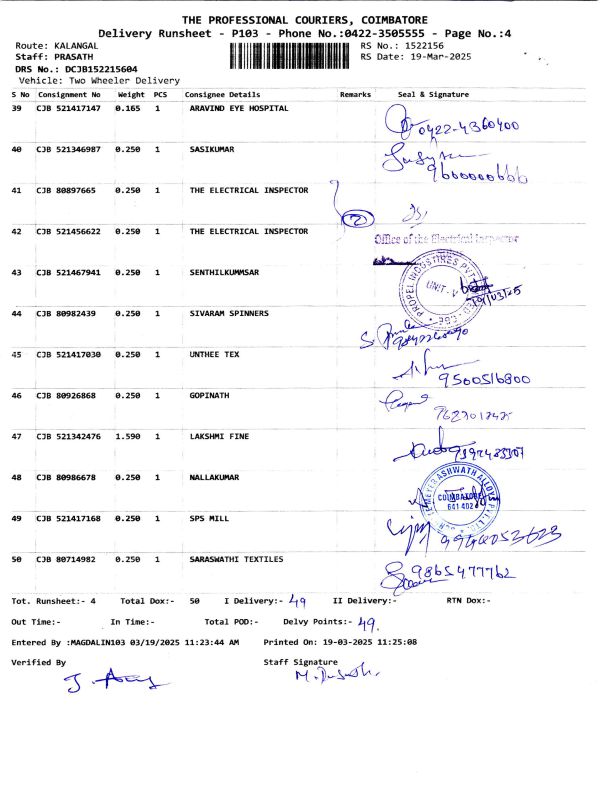 THE PROFESSIONAL COURIERS, COIMBATORE
Delivery Runsheet - P103 - Phone No.:0422-3505555 - Page No.:4
Route: KALANGAL RS No.: 1522156
Staff: PRASATH RS Date: 19-Mar-2025
DRS No.: DCJB152215604
Vehicle: Two Wheeler Delivery
S No Consignment No Weight PCS Consignee Details Remarks Seal & Signature
39 CJB 521417147 0.165 1 ARAVIND EYE HOSPITAL
0422-4360400
40 CJB 521346987 0.250 1 SASIKUMAR
9600000666
41 CJB 80897665 0.250 1 THE ELECTRICAL INSPECTOR
2
42 CJB 521456622 0.250 1 THE ELECTRICAL INSPECTOR
Office of the Electrical Inspector
43 CJB 521467941 0.250 1 SENTHILKUMMSAR
PROPEL INDUSTRIES PVT
UNIT-V
19/03/25
44 CJB 80982439 0.250 1 SIVARAM SPINNERS
45 CJB 521417030 0.250 1 UNTHEE TEX
9500516800
46 CJB 80926868 0.250 1 GOPINATH
47 CJB 521342476 1.590 1 LAKSHMI FINE
48 CJB 80986678 0.250 1 NALLAKUMAR
ASHWATH ALLOYS
COIMBATORE
641 402
49 CJB 521417168 0.250 1 SPS MILL
50 CJB 80714982 0.250 1 SARASWATHI TEXTILES
9865477762
Tot. Runsheet:- 4 Total Dox:- 50 I Delivery:- 49 II Delivery:- RTN Dox:-
Out Time:- In Time:- Total POD:- Delvy Points:- 49.
Entered By :MAGDALIN103 03/19/2025 11:23:44 AM Printed On: 19-03-2025 11:25:08
Verified By Staff Signature